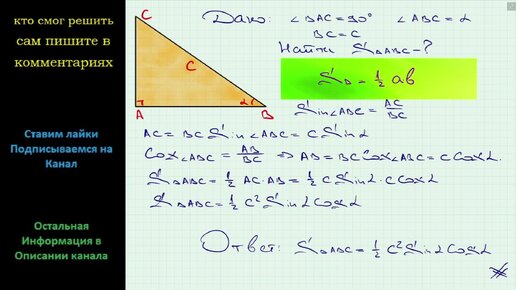 кто смог решить
сам пишите в
комментариях
Ставим лайки
Подписываемся на
Канал
Остальная
Информация в
Описании канала
C
C
A
α
B
Дано: ∠BAC=90° ∠ABC=α
BC=C
Найти S△ABC-?
S△=½ab
Sin∠ABC=AC/BC
AC=BC Sin∠ABC=C Sinα
Cos∠ABC=AB/BC ⇒ AB=BC Cos∠ABC=C Cosα.
S△ABC=½ AC·AB=½ C Sinα·C Cosα
S△ABC=½ C² Sinα Cosα
Ответ: S△ABC=½ C² Sinα Cosα